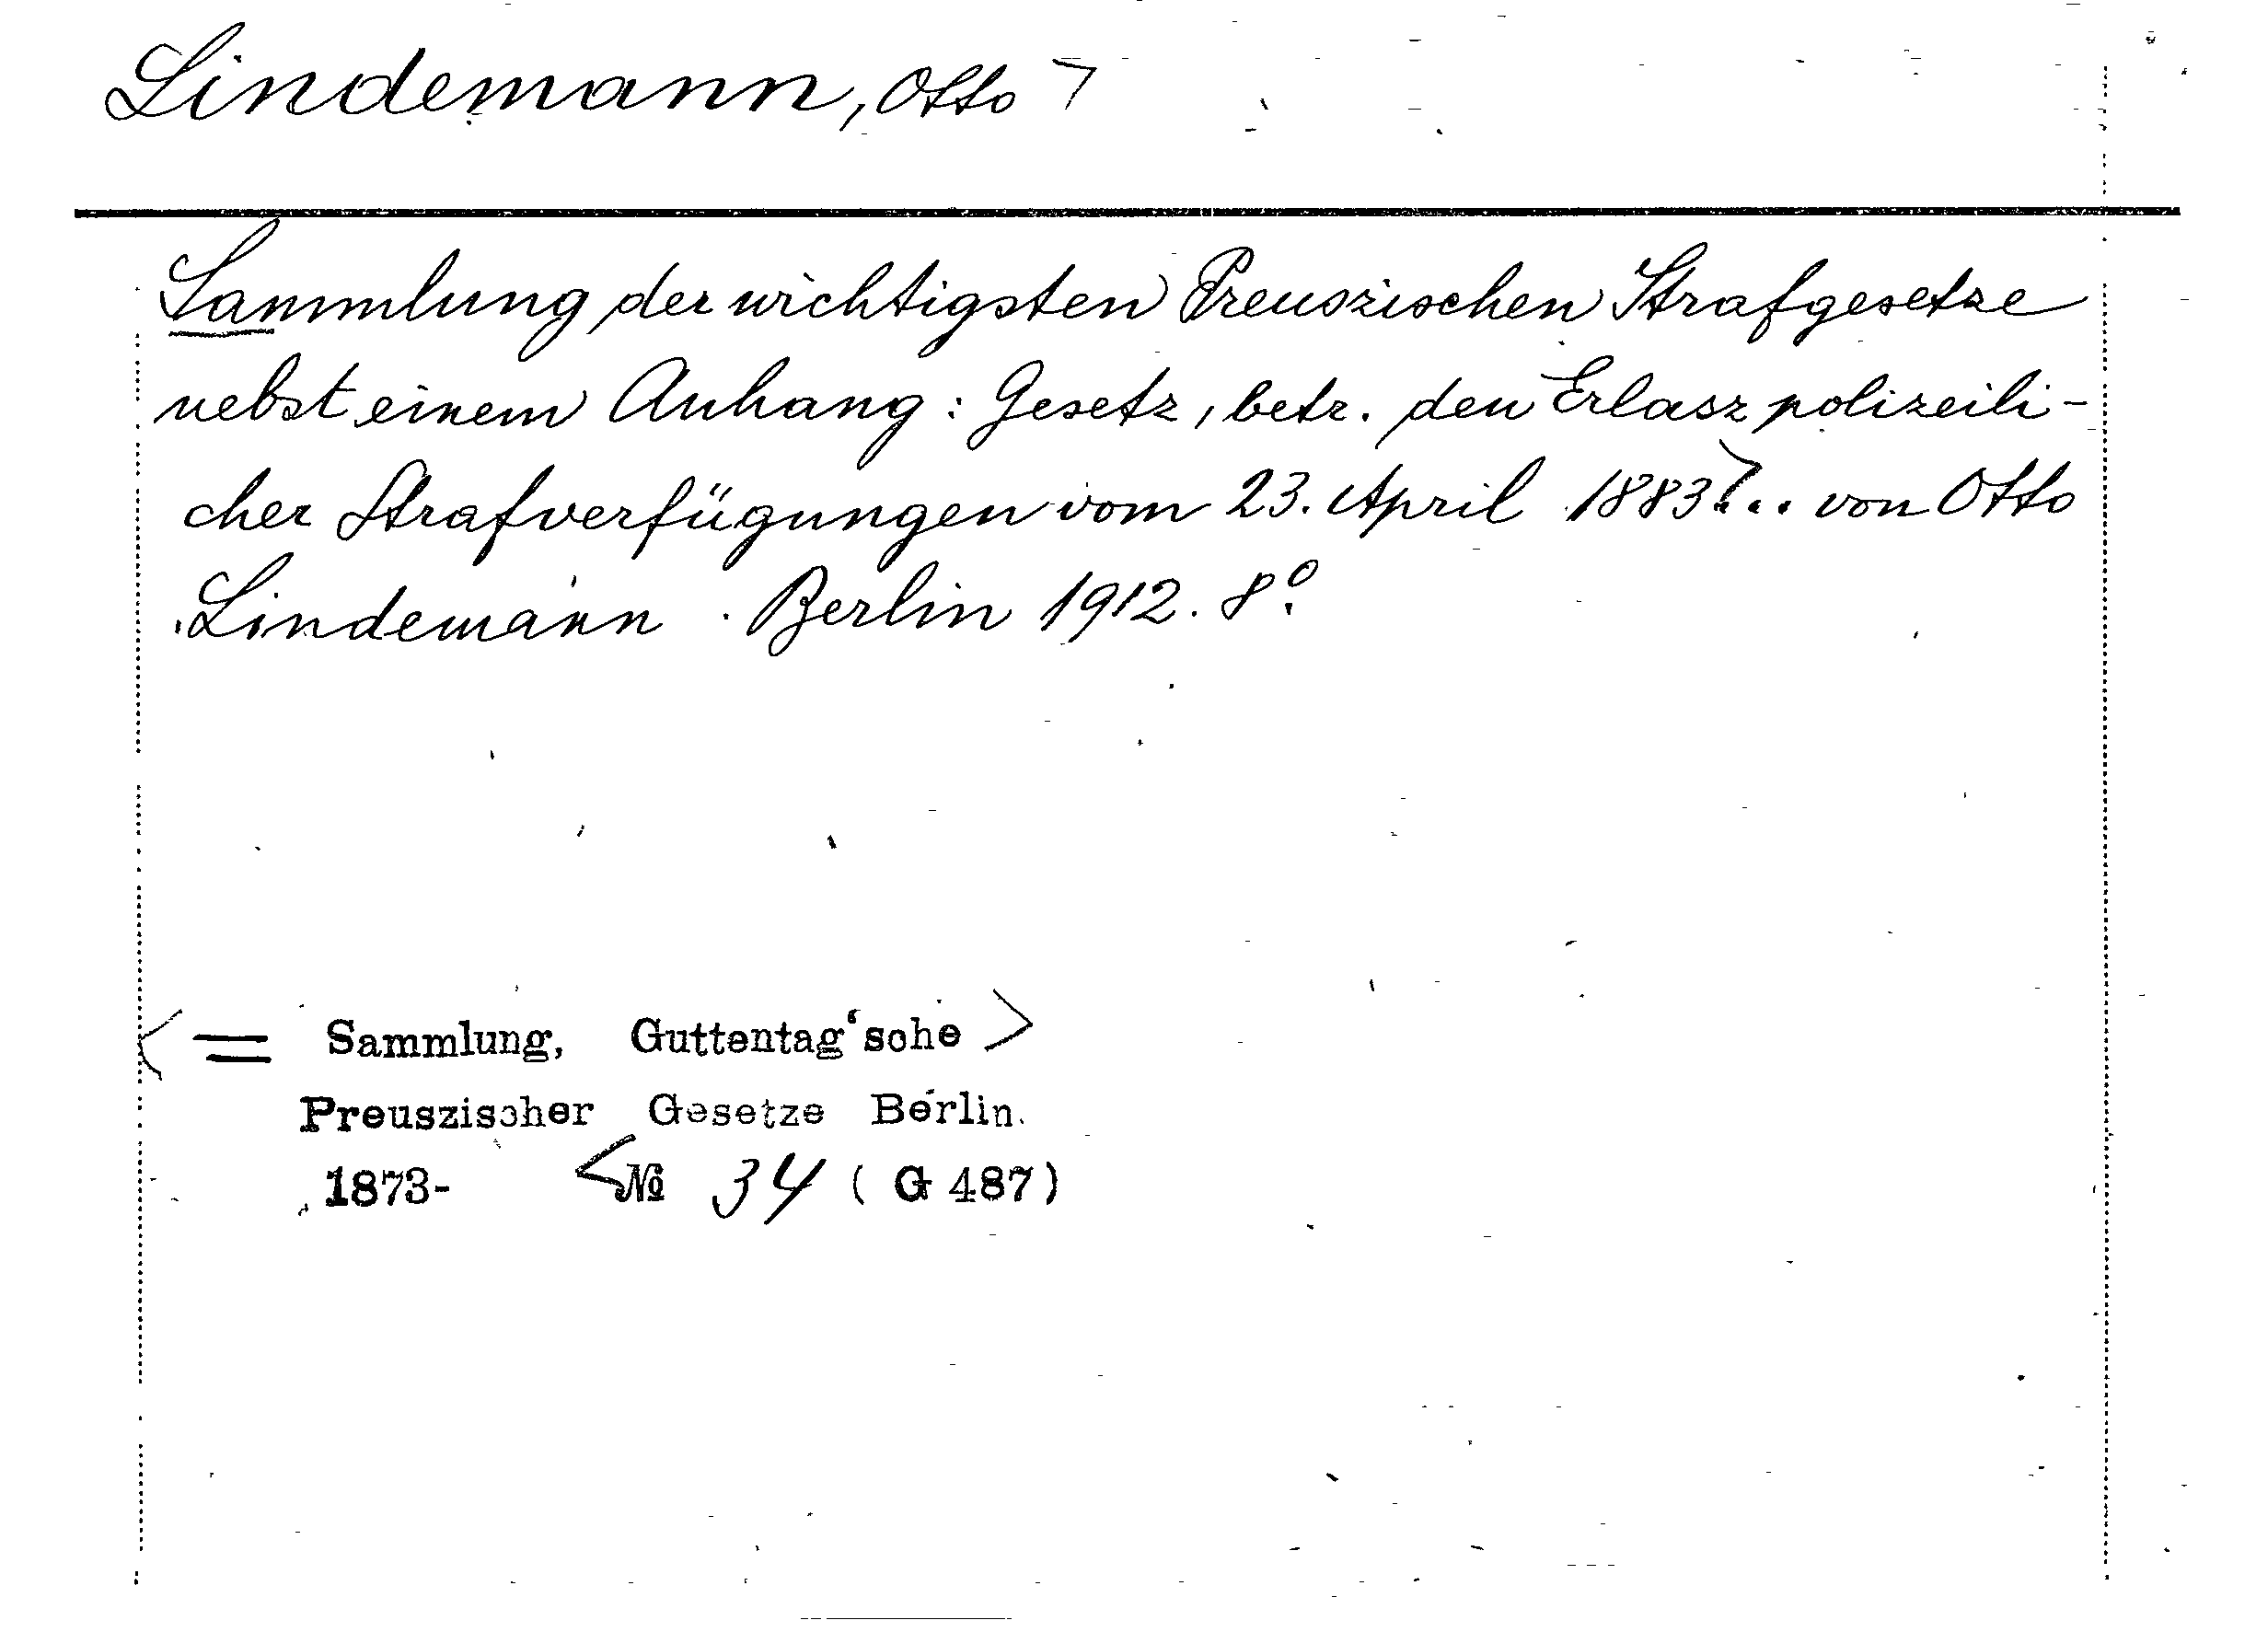 Lindemann, Otto >
Sammlung der wichtigsten Preuszischen Strafgesetze
nebst einem Anhang : Gesetz, betr. den Erlasz polizeili-
cher Strafverfügungen vom 23. April 1883>... von Otto
Lindemann. Berlin 1912. 8º.
< = Sammlung, Guttentag'sche >
Preuszischer Gesetze Berlin.
1873- < № 34 ( G 487)